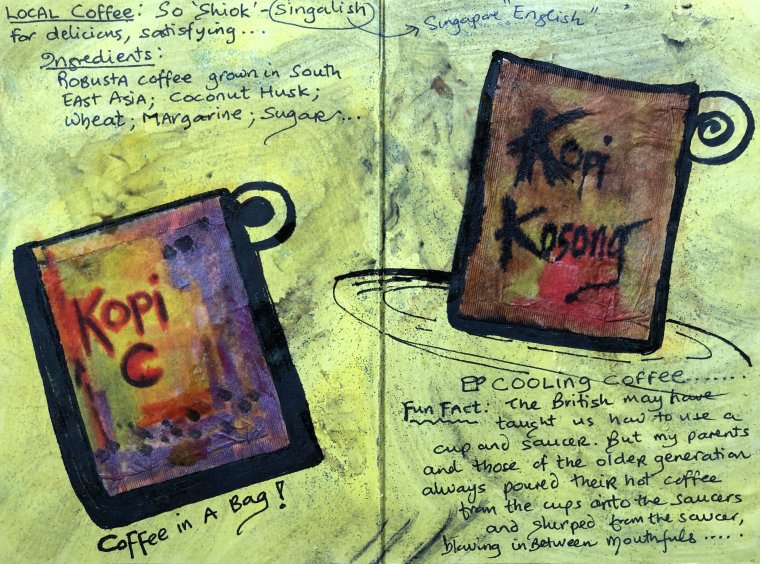 LOCAL COFFEE: So 'Shiok' - Singalish
for delicious, satisfying...
Singapore "English"
Ingredients:
ROBUSTA COFFEE grown in South
EAST ASIA; COCONUT HUSK;
WHEAT; MARGARINE; SUGAR...
Kopi
Kosong
Kopi
C
COFFEE IN A BAG!
COOLING COFFEE......
FUN FACT: The British may have
taught us how to use a
cup and saucer. But my parents
and those of the older generation
always poured their hot coffee
from the cups onto the saucers
and slurped from the saucer,
blowing in between mouthfuls.....